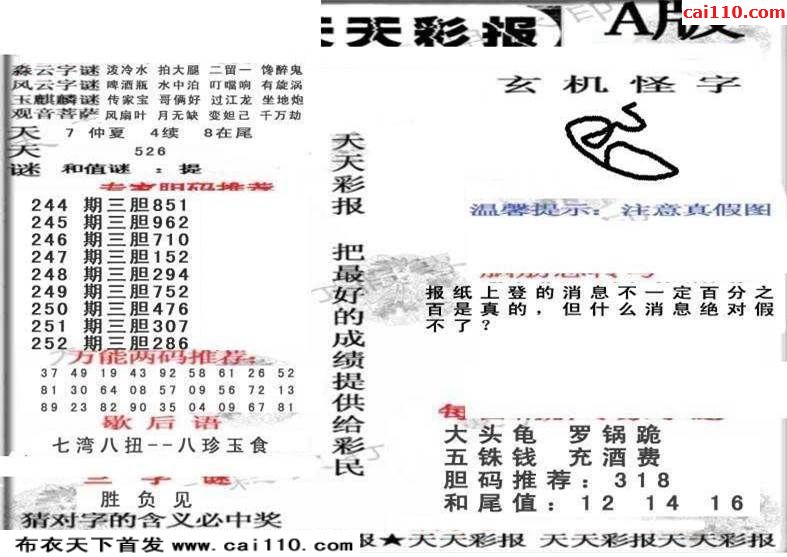 cai110.com
天天彩报】A版
淼云字谜 泼冷水 拍大腿 二留一 馋醉鬼
风云字谜 啤酒瓶 水中泊 叮噹响 有旋涡
玉麒麟谜 传家宝 哥俩好 过江龙 坐地炮
观音菩萨 风扇叶 月无缺 变妲己 千万劫
天 7 仲夏 4续 8在尾
天 526
谜 和值谜 : 提
专家胆码推荐
244 期三胆851
245 期三胆962
246 期三胆710
247 期三胆152
248 期三胆294
249 期三胆752
250 期三胆476
251 期三胆307
252 期三胆286
万能两码推荐:
37 49 19 43 92 58 61 26 52
81 30 64 08 57 09 56 72 13
89 23 82 90 35 04 09 67 81
歇后语
七湾八扭--八珍玉食
三字谜
胜负见
猜对字的含义必中奖
布衣天下首发 www.cai110.com
天天彩报 把最好的成绩提供给彩民
玄机怪字
温馨提示: 注意真假图
报纸上登的消息不一定百分之
百是真的，但什么消息绝对假
不了？
大头龟 罗锅跪
五铢钱 充酒费
胆码推荐: 318
和尾值: 12 14 16
报★天天彩报 天天彩报天天彩报